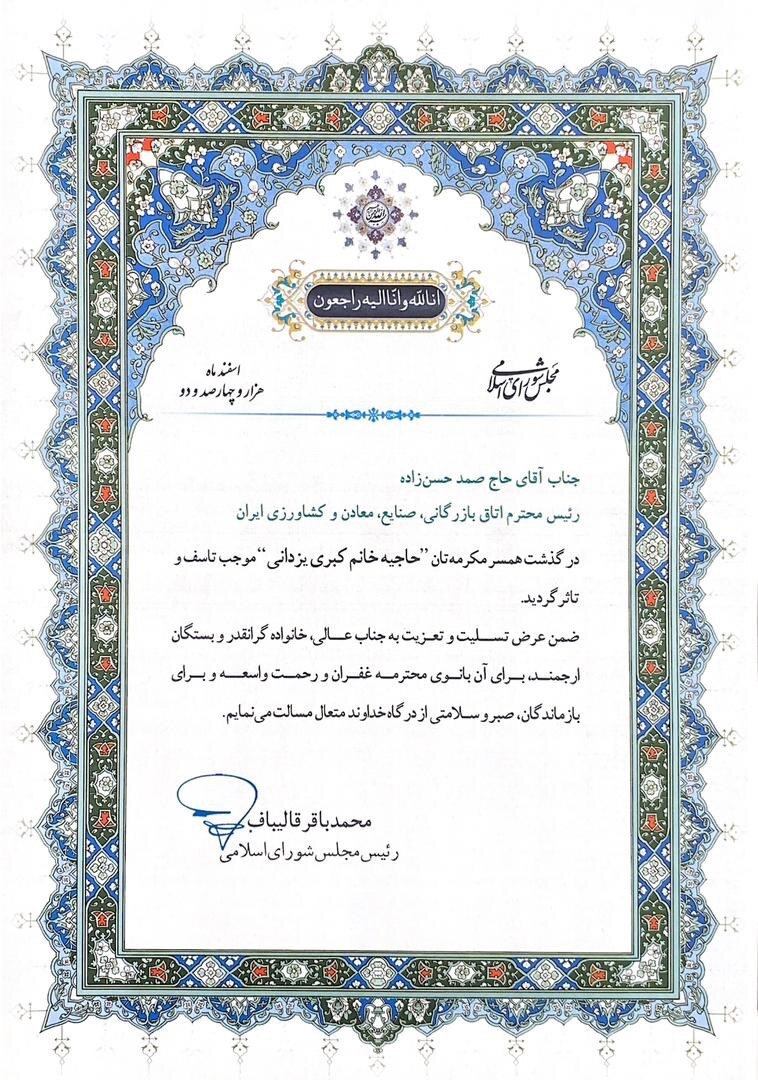 انا لله وانا الیه راجعون
مجلس شورای اسلامی
اسفند ماه
هزار و چهارصد و دو
جناب آقای حاج صمد حسن‌زاده
رئیس محترم اتاق بازرگانی، صنایع، معادن و کشاورزی ایران
درگذشت همسر مکرمه‌تان “حاجیه خانم کبری یزدانی” موجب تاسف و
تاثر گردید.
ضمن عرض تسلیت و تعزیت به جناب عالی، خانواده گرانقدر و بستگان
ارجمند، برای آن بانوی محترمه غفران و رحمت واسعه و برای
بازماندگان، صبر و سلامتی از درگاه خداوند متعال مسالت می‌نمایم.
محمدباقر قالیباف
رئیس مجلس شورای اسلامی